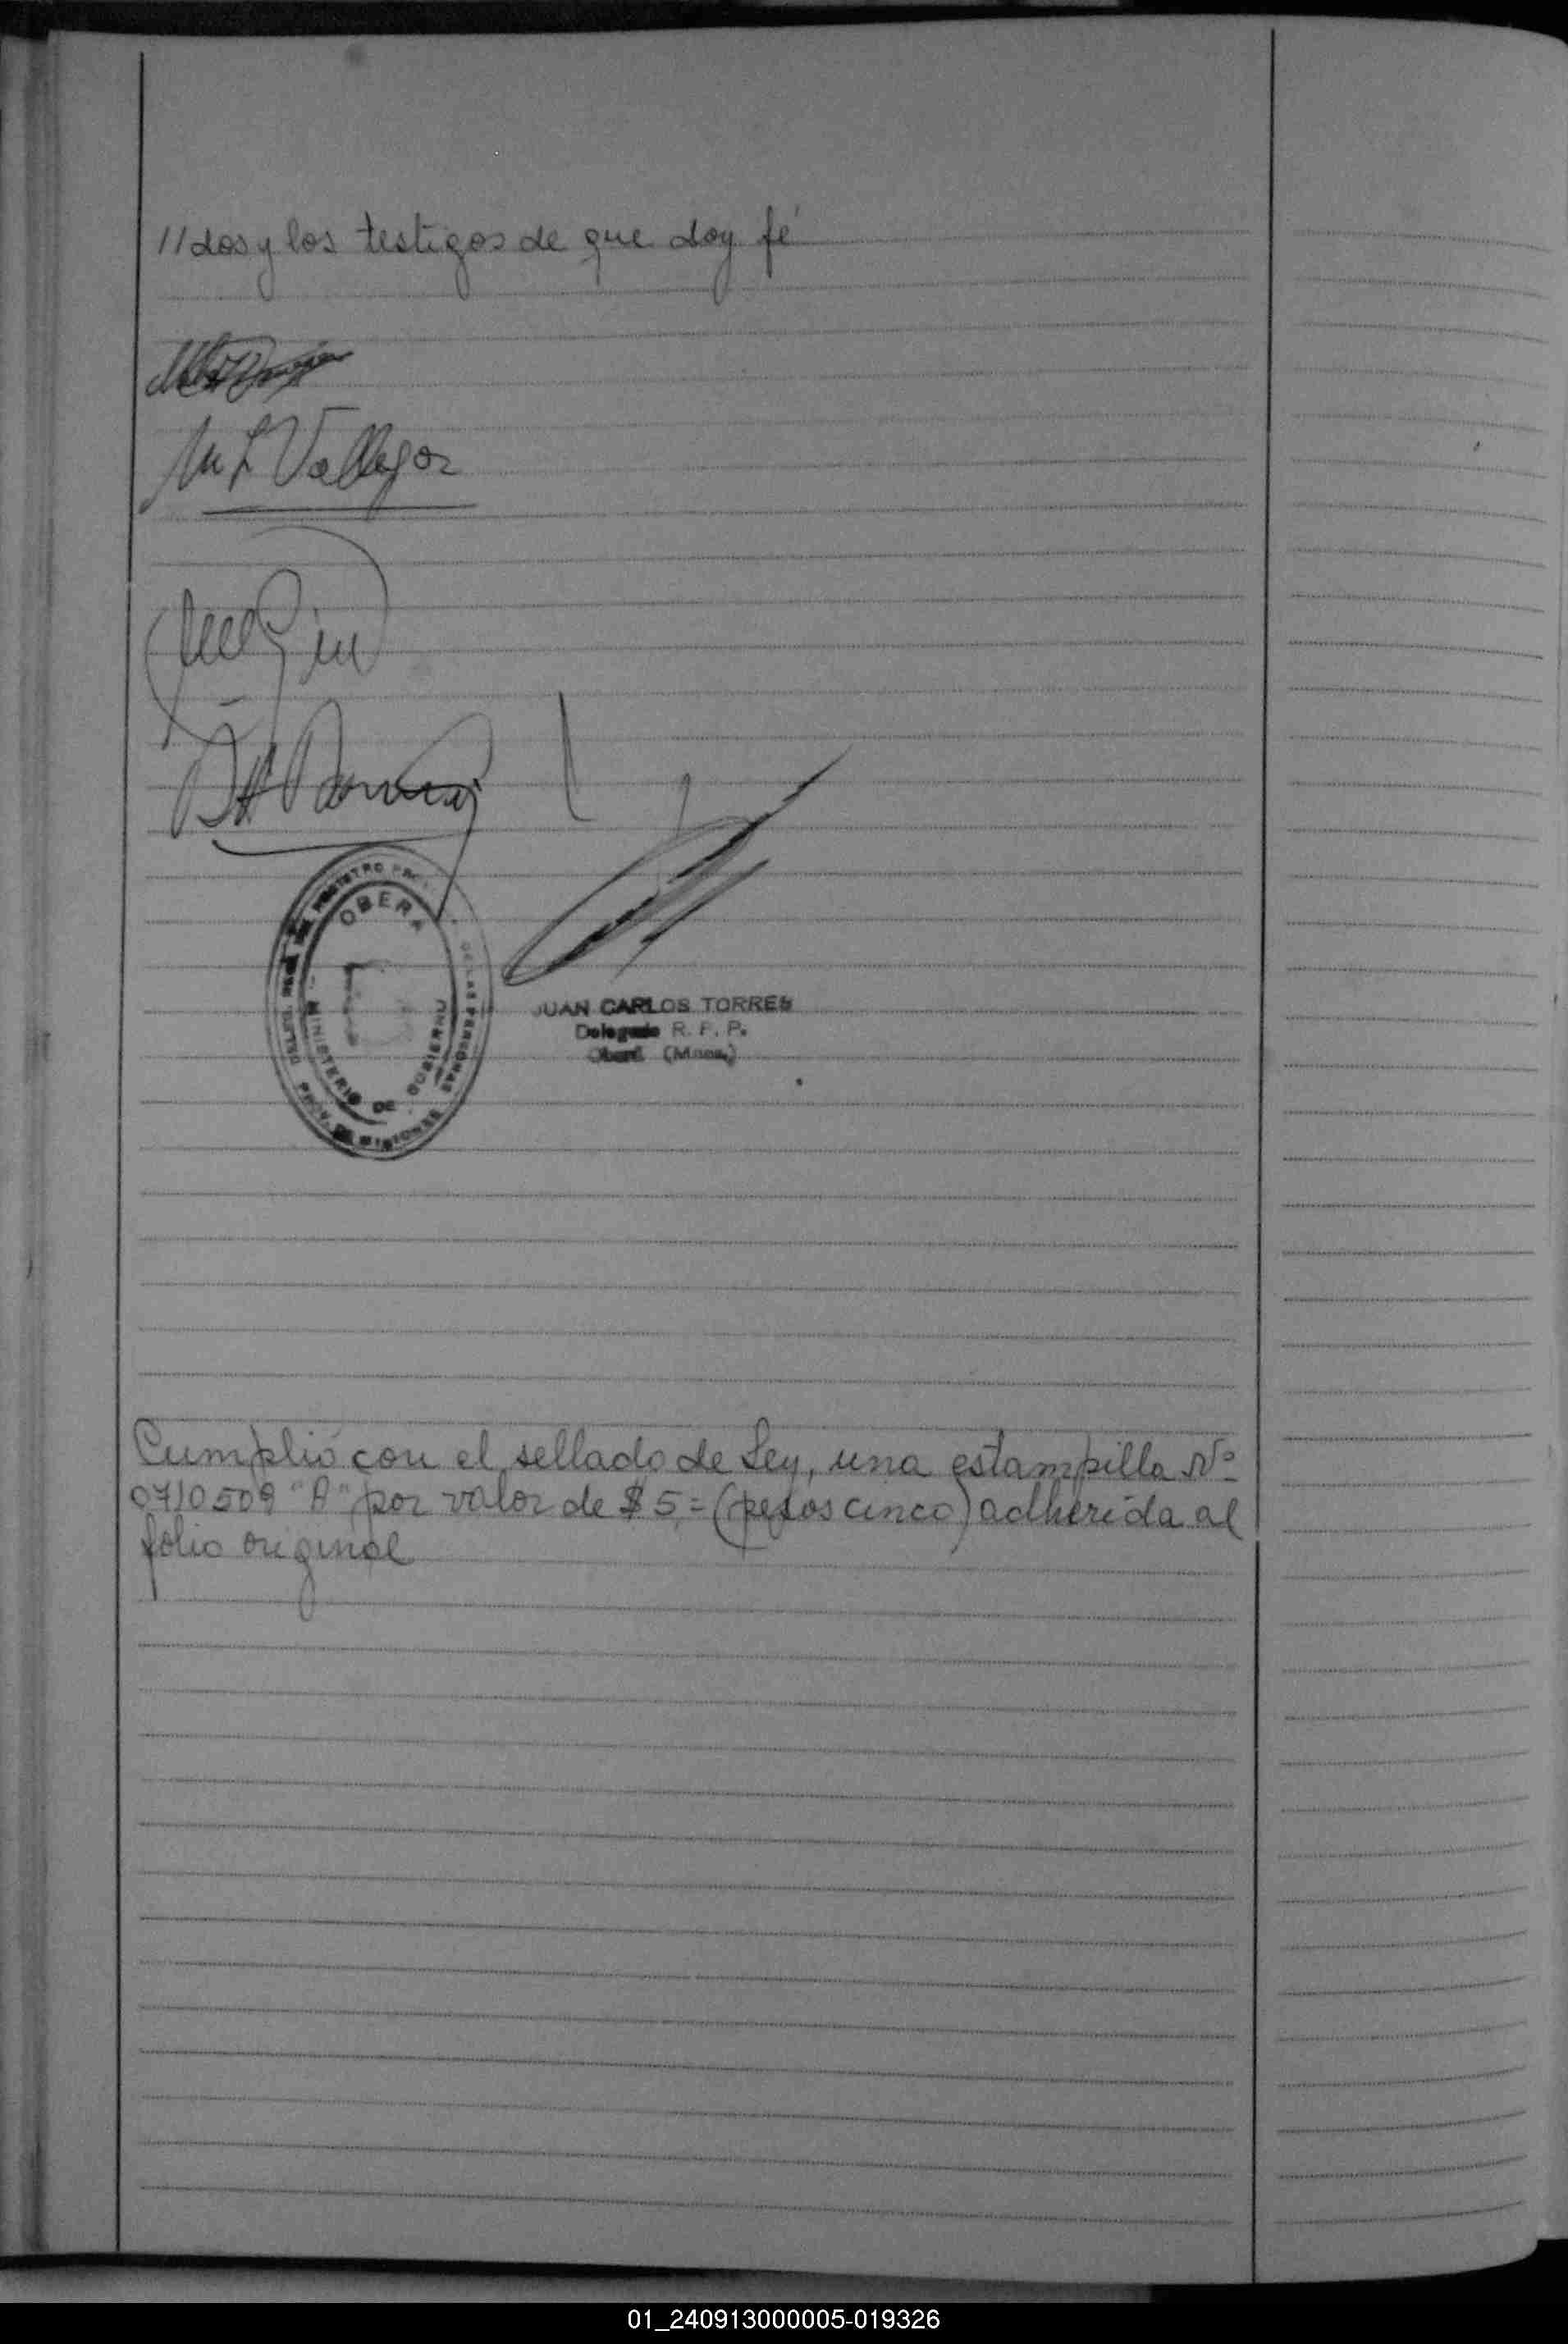 //dos y los testigos de que doy fé
OBERA
MINISTERIO DE GOBIERNO
PROV. DE MISIONES
JUAN CARLOS TORRES
Delegado R. P. P.
Oberá (Mnes.)
Cumplió con el sellado de Ley, una estampilla Nº
0710509 "A" por valor de $ 5,= (pesos cinco) adherida al
folio original
01_240913000005-019326